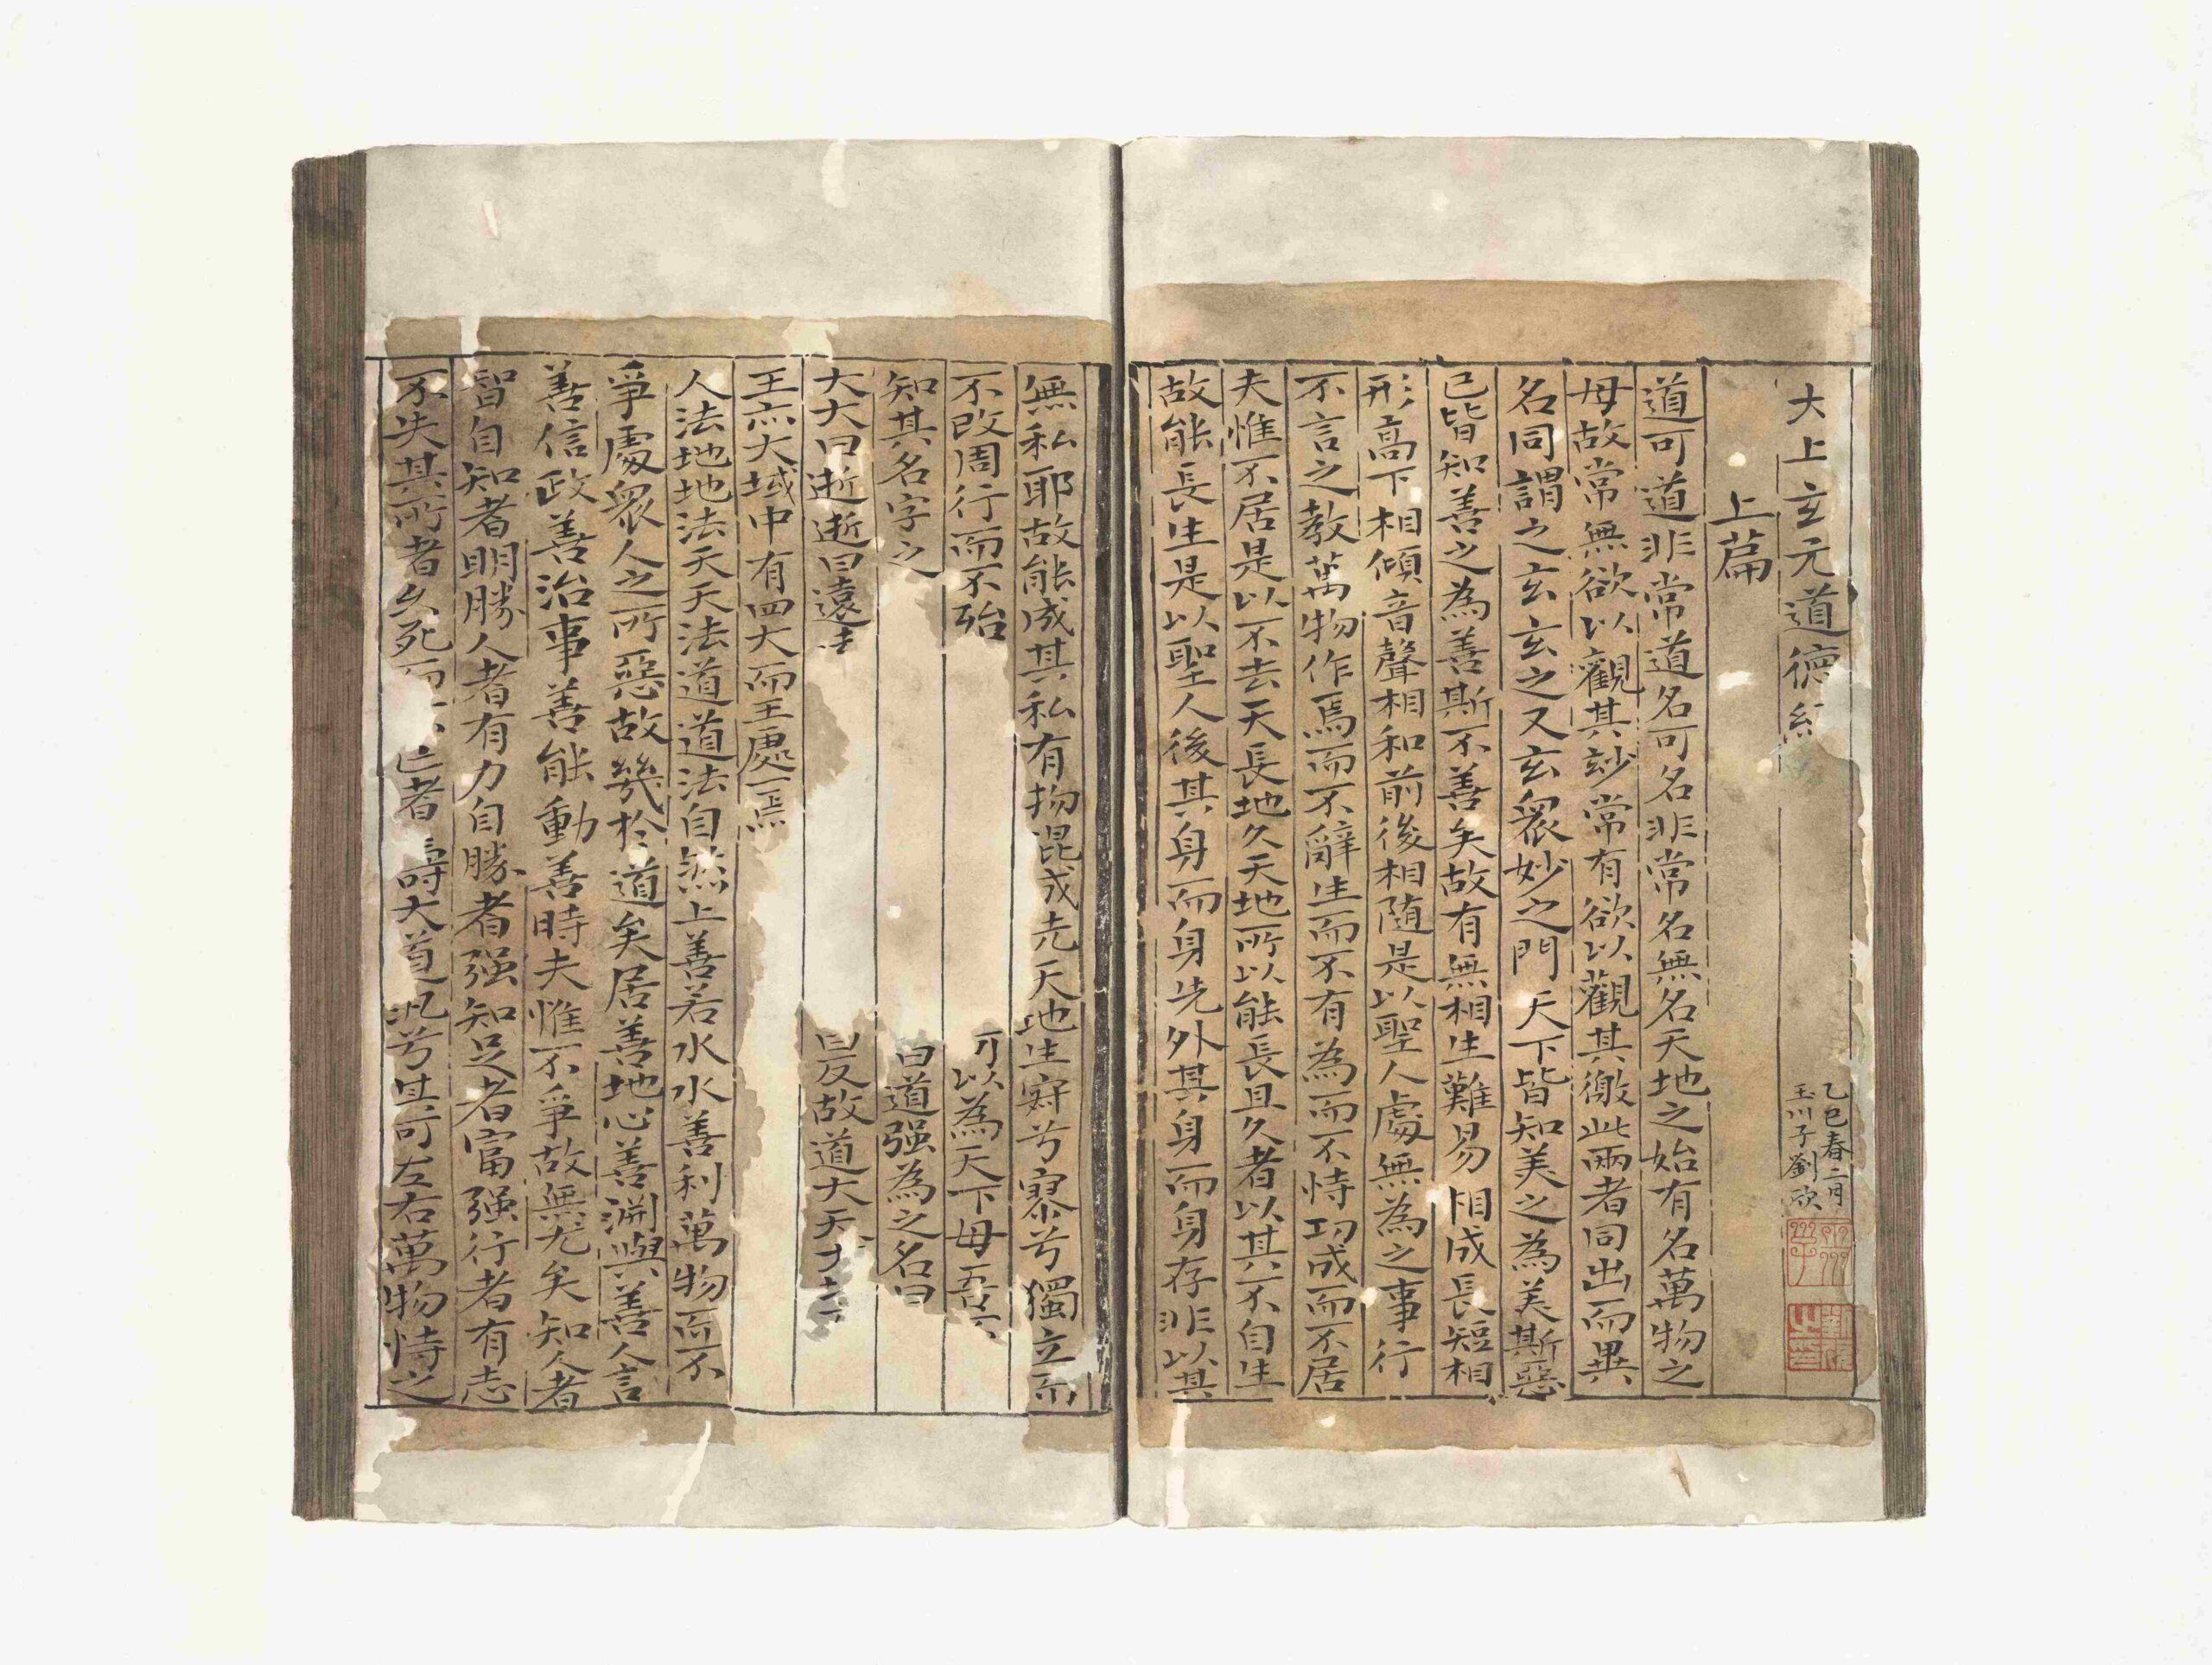 大上玄元道德經
乙巳春二月
玉川子劉欣
上篇
道可道非常道名可名非常名無名天地之始有名萬物之
母故常無欲以觀其妙常有欲以觀其徼此兩者同出而異
名同謂之玄玄之又玄衆妙之門天下皆知美之為美斯惡
已皆知善之為善斯不善矣故有無相生難易相成長短相
形高下相傾音聲相和前後相隨是以聖人處無為之事行
不言之教萬物作焉而不辭生而不有為而不恃功成而不居
夫惟不居是以不去天長地久天地所以能長且久者以其不自生
故能長生是以聖人後其身而身先外其身而身存非以其
無私耶故能成其私有物混成先天地生寂兮寥兮獨立而
不改周行而不殆可以為天下母吾不
知其名字之曰道强為之名曰
大大曰逝逝曰遠遠曰反故道大天大
王亦大域中有四大而王處一焉
人法地地法天天法道道法自然上善若水水善利萬物而不
爭處衆人之所惡故幾於道矣居善地心善淵與善人言
善信政善治事善能動善時夫惟不爭故無尤矣知人者
智自知者明勝人者有力自勝者强知足者富强行者有志
不失其所者久死而不亡者壽大道汎兮其可左右萬物恃之